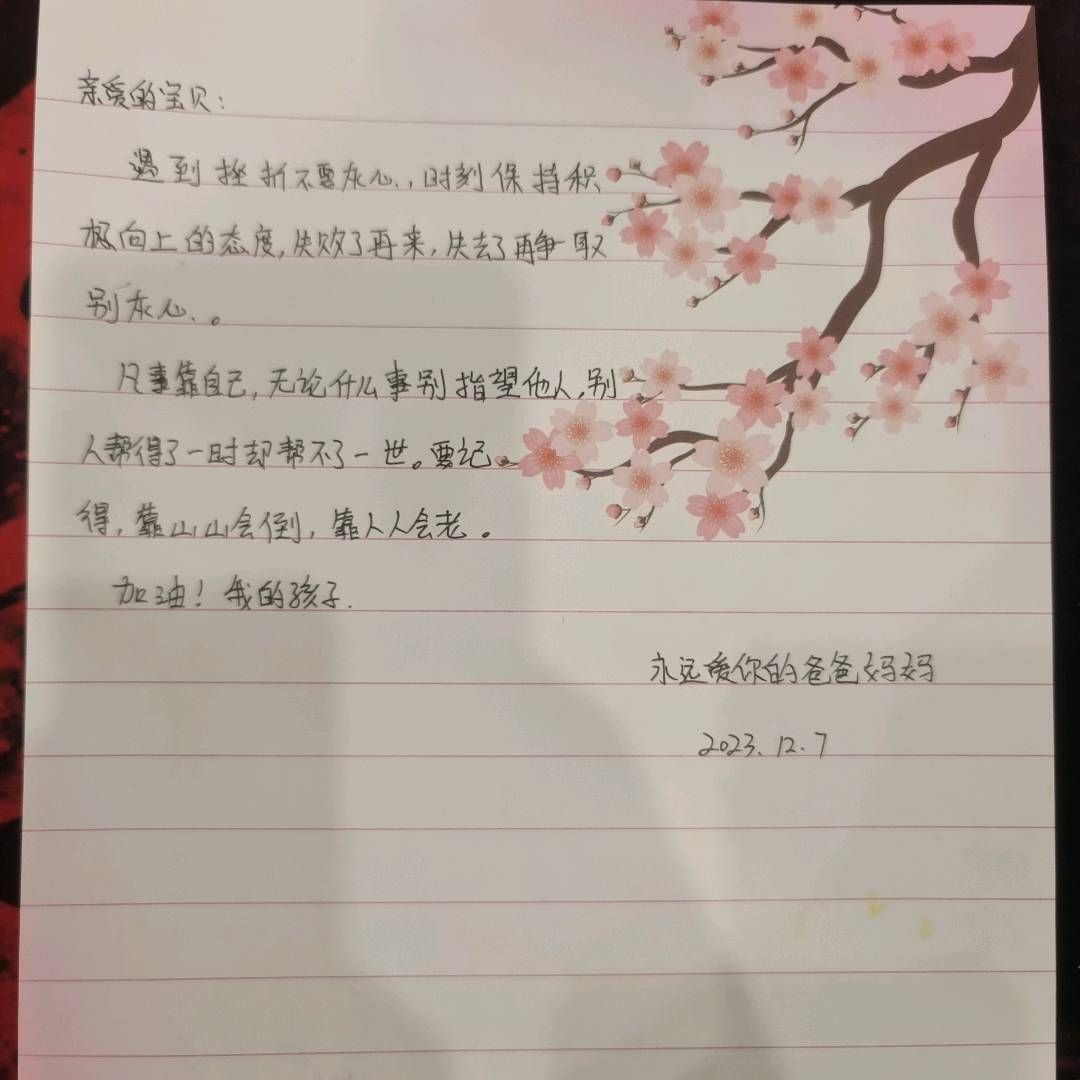 亲爱的宝贝：
遇到挫折不要灰心，时刻保持积
极向上的态度，失败了再来，失去了再争取
别灰心。
凡事靠自己，无论什么事别指望他人，别
人帮得了一时却帮不了一世。要记
得，靠山山会倒，靠人人会老。
加油！我的孩子.
永远爱你的爸爸妈妈
2023.12.7